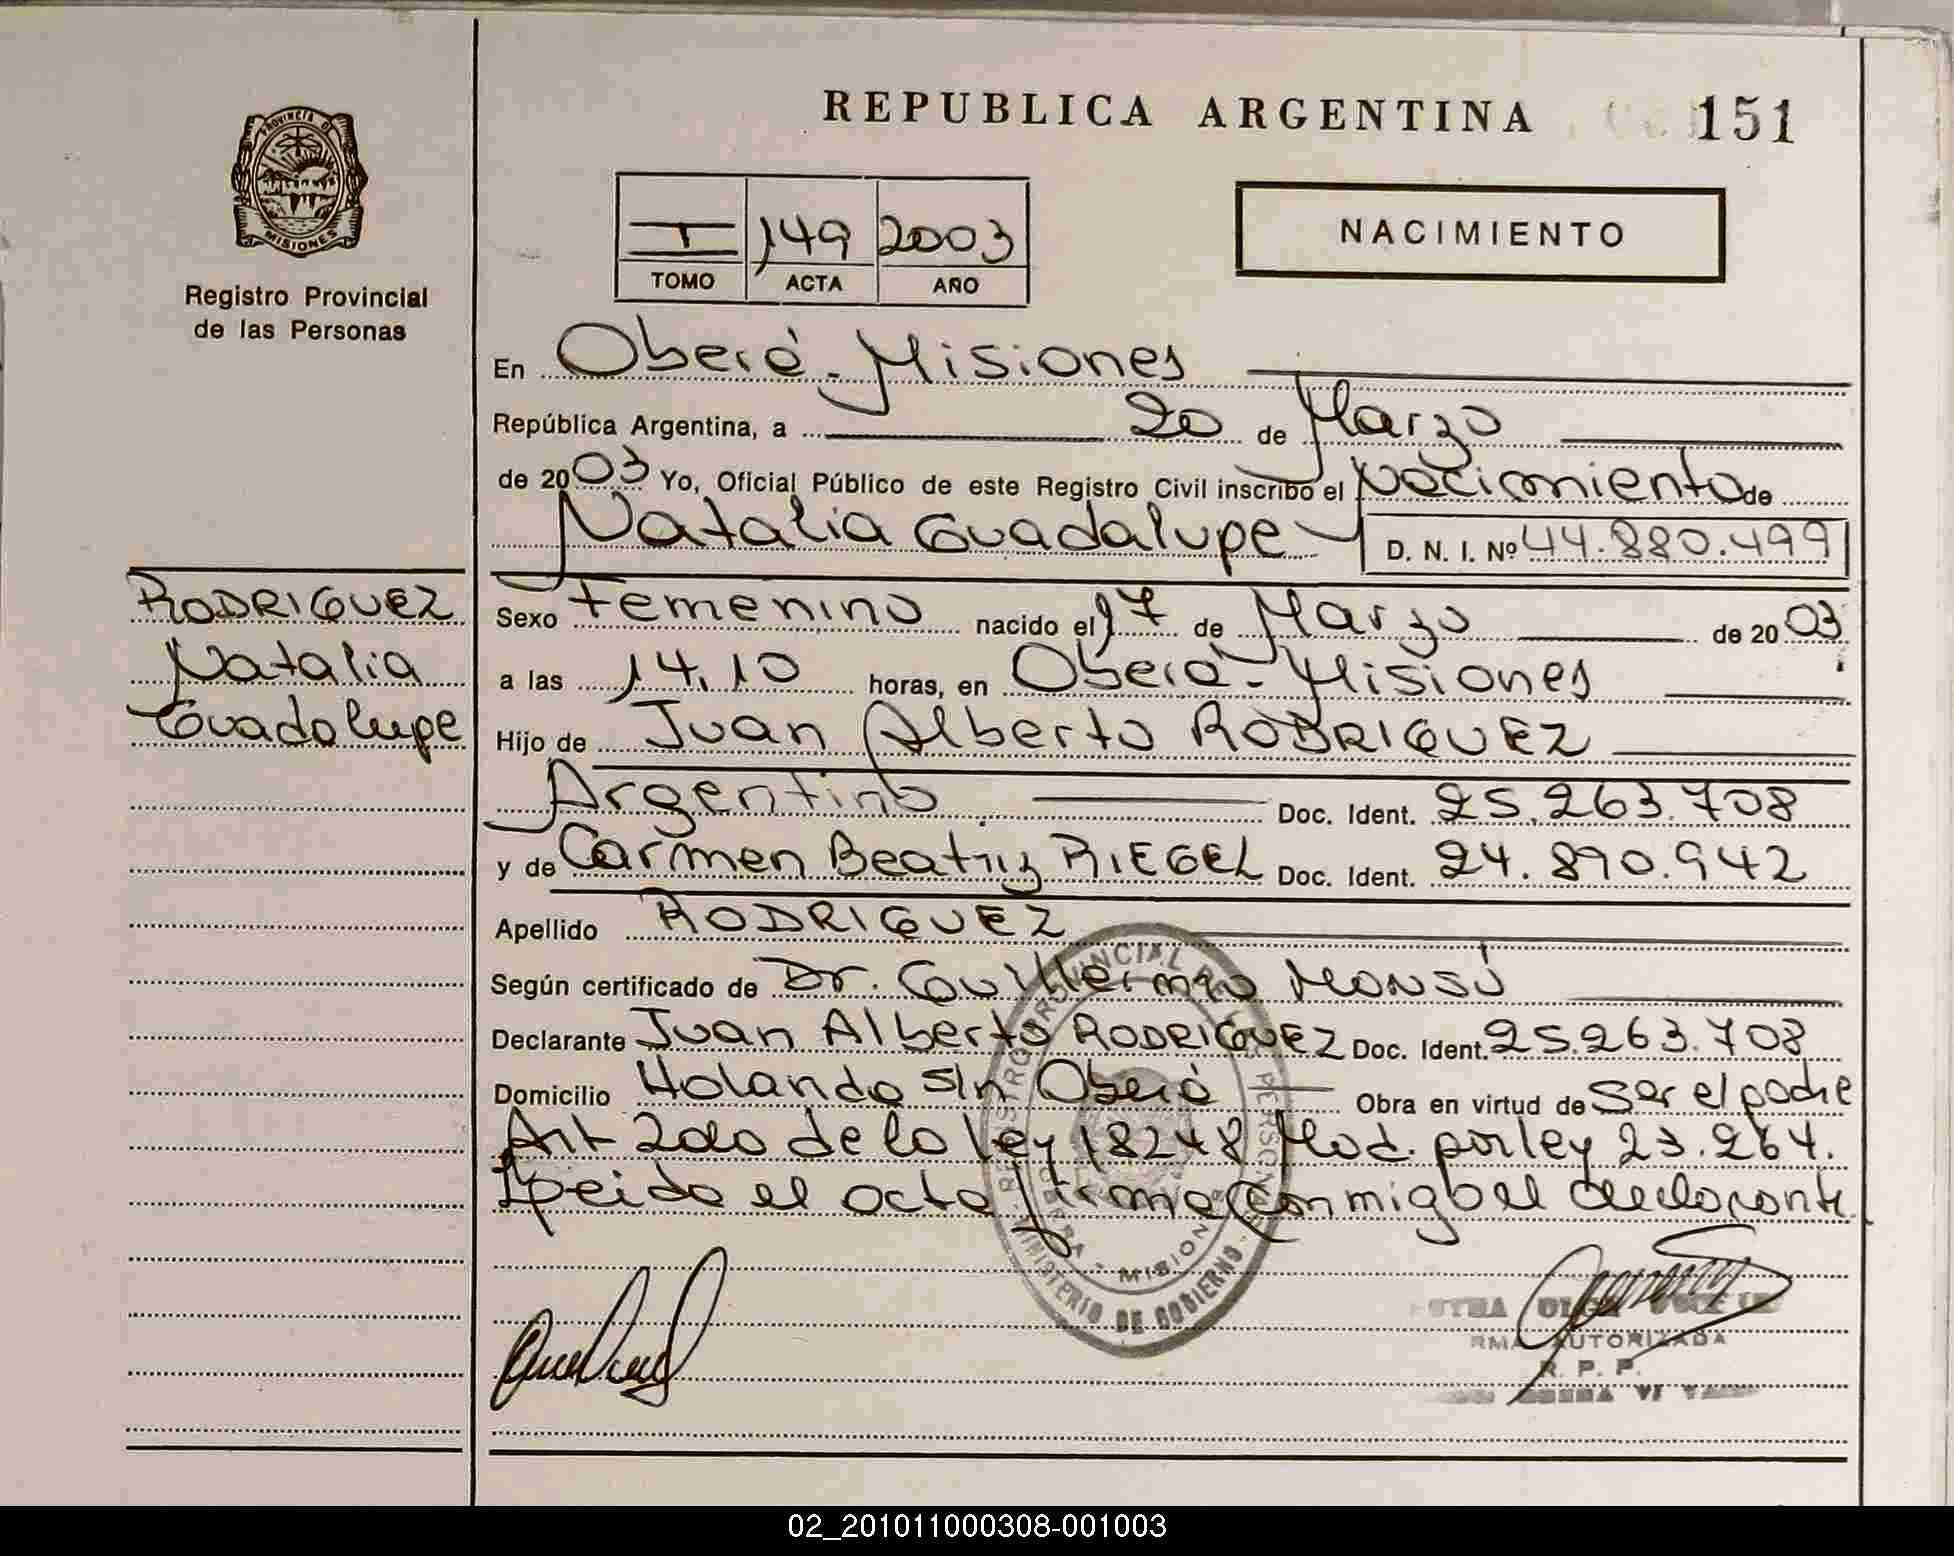 REPUBLICA ARGENTINA 151
PROVINCIA DE
MISIONES
Registro Provincial
de las Personas
I 149 2003
TOMO ACTA AÑO
NACIMIENTO
En Oberá - Misiones
República Argentina, a 20 de Marzo
de 2003 Yo, Oficial Público de este Registro Civil inscribo el Nacimiento de
Natalia Guadalupe D. N. I. Nº 44.880.499
RODRIGUEZ
Natalia
Guadalupe
Sexo Femenino nacido el 17 de Marzo de 2003
a las 14,10 horas, en Oberá - Misiones
Hijo de Juan Alberto RODRIGUEZ
Argentino Doc. Ident. 25.263.708
y de Carmen Beatriz RIEGEL Doc. Ident. 24.890.942
Apellido RODRIGUEZ
Según certificado de Dr. Guillermo MONSÚ
Declarante Juan Alberto RODRIGUEZ Doc. Ident. 25.263.708
Domicilio Holanda s/n Oberá Obra en virtud de Ser el padre
Art 2do de la ley 18248 Mod. por ley 23.264.
Leida el acta firma Conmigo el declarante
MINISTERIO DE GOBIERNO
OBERA - MISIONES
AUTORIZADA
R. P. P.
02_201011000308-001003